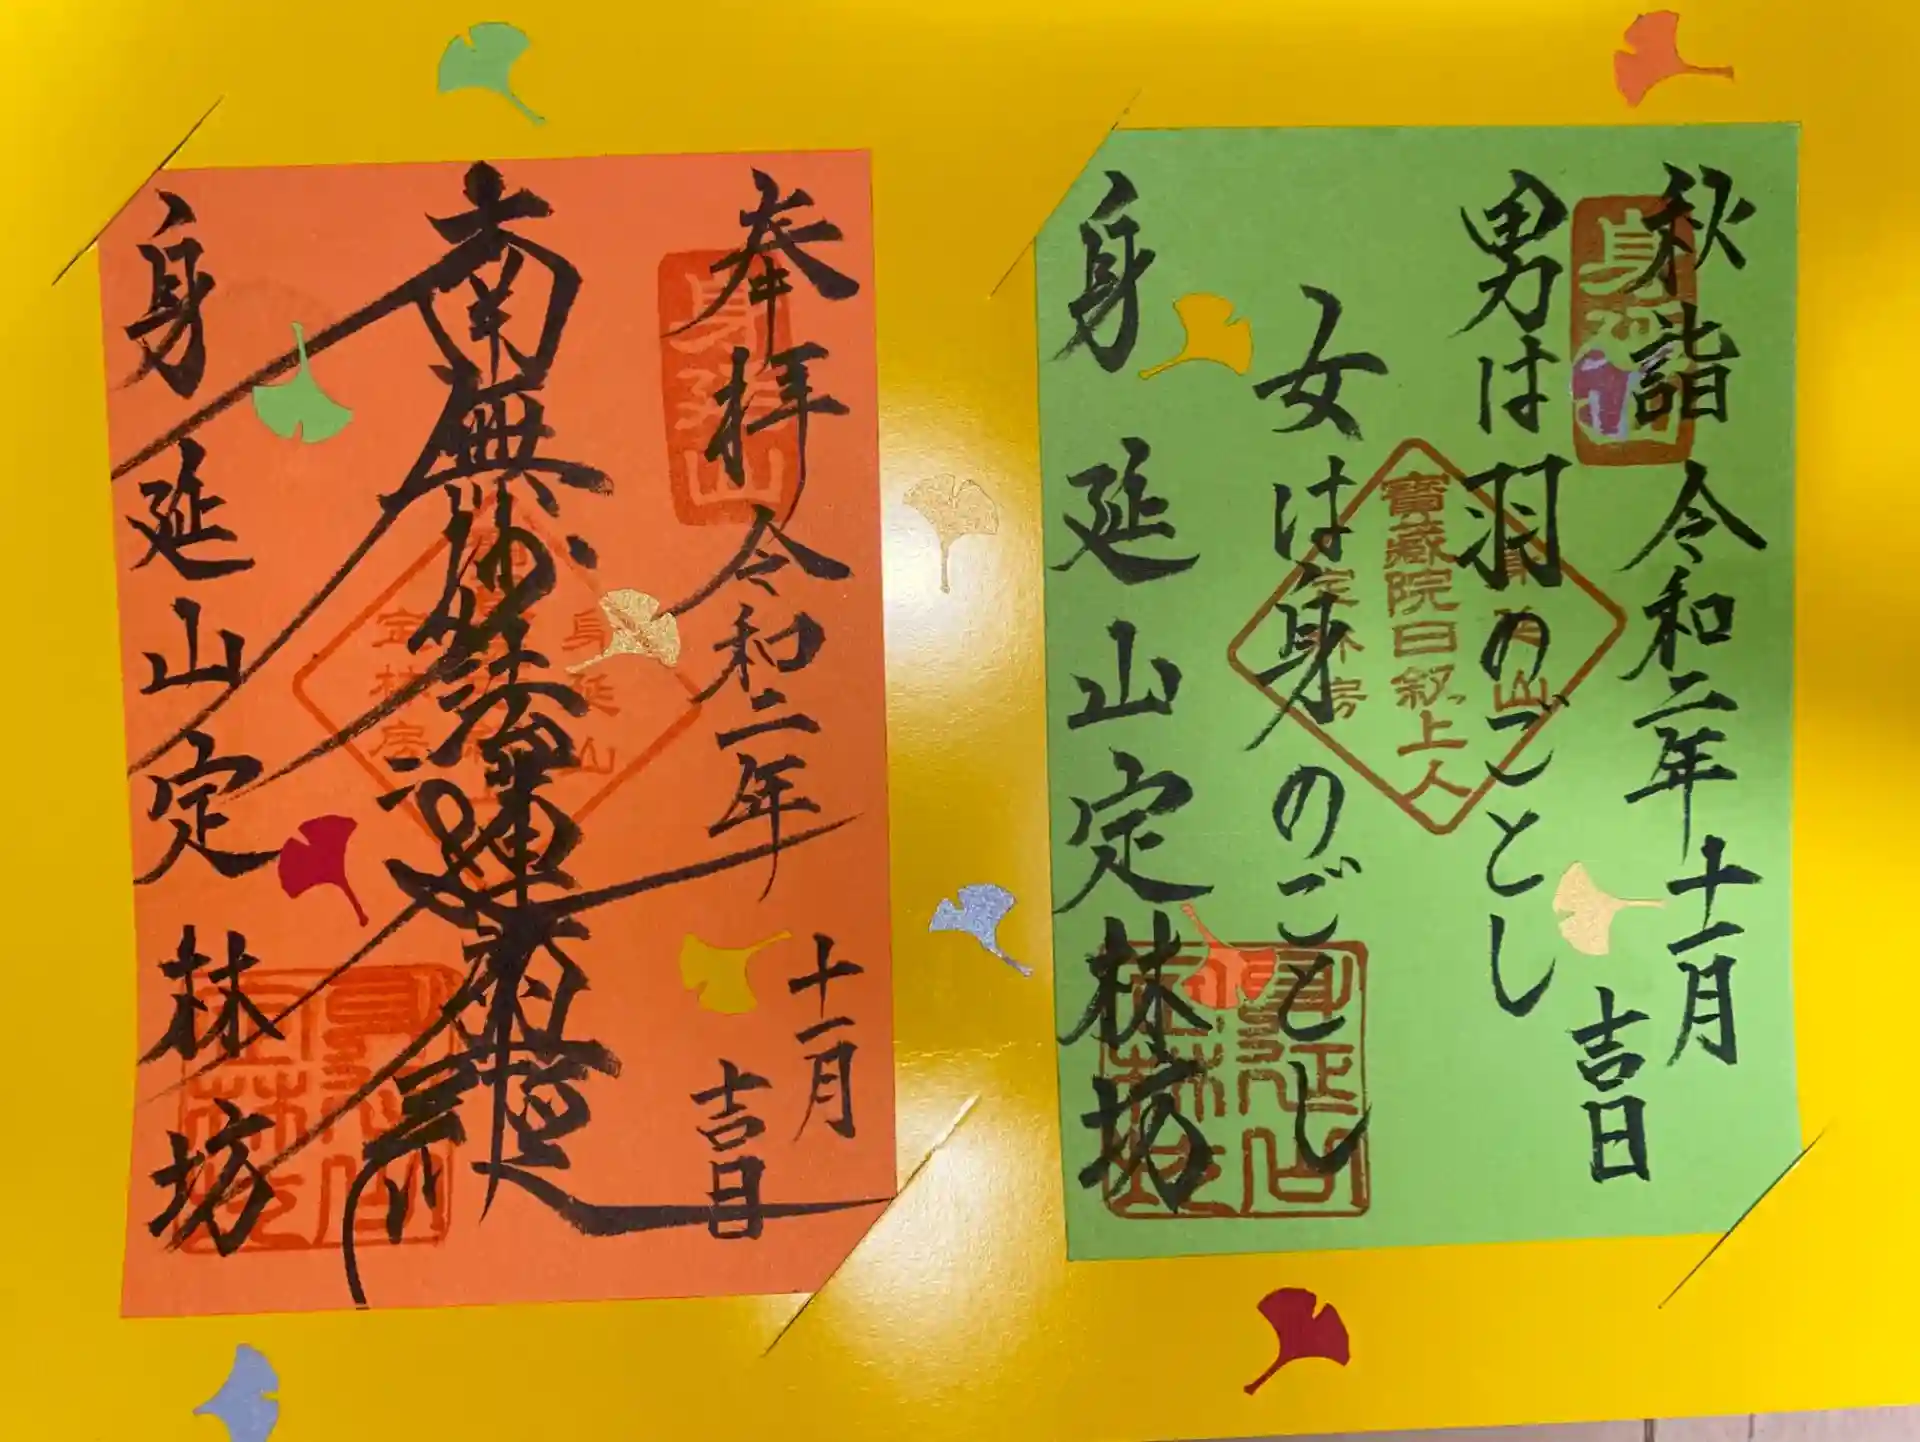 秋詣 令和二年十一月
吉日
身延山
男は羽のごとし
女は身のごとし
身延山
寶蔵院日叙上人
定林房
身延山定林坊
身延山
定林坊
奉拝 令和二年
十一月
吉日
身延山
南無妙法蓮華経
身延山
定林房
身延山定林坊
身延山
定林坊